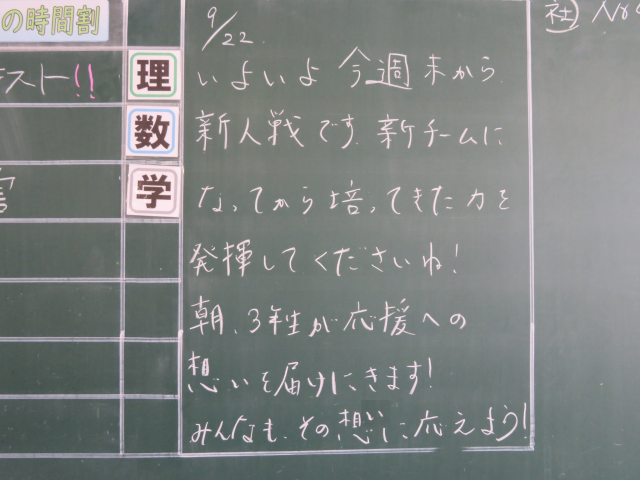 の時間割
スト!!
理
数
学
9/22
いよいよ今週末から
新人戦です. 新チームに
なってから培ってきた力を
発揮してくださいね!
朝、3年生が応援への
想いを届けにきます!
みんなも、その想いに応えよう!
社